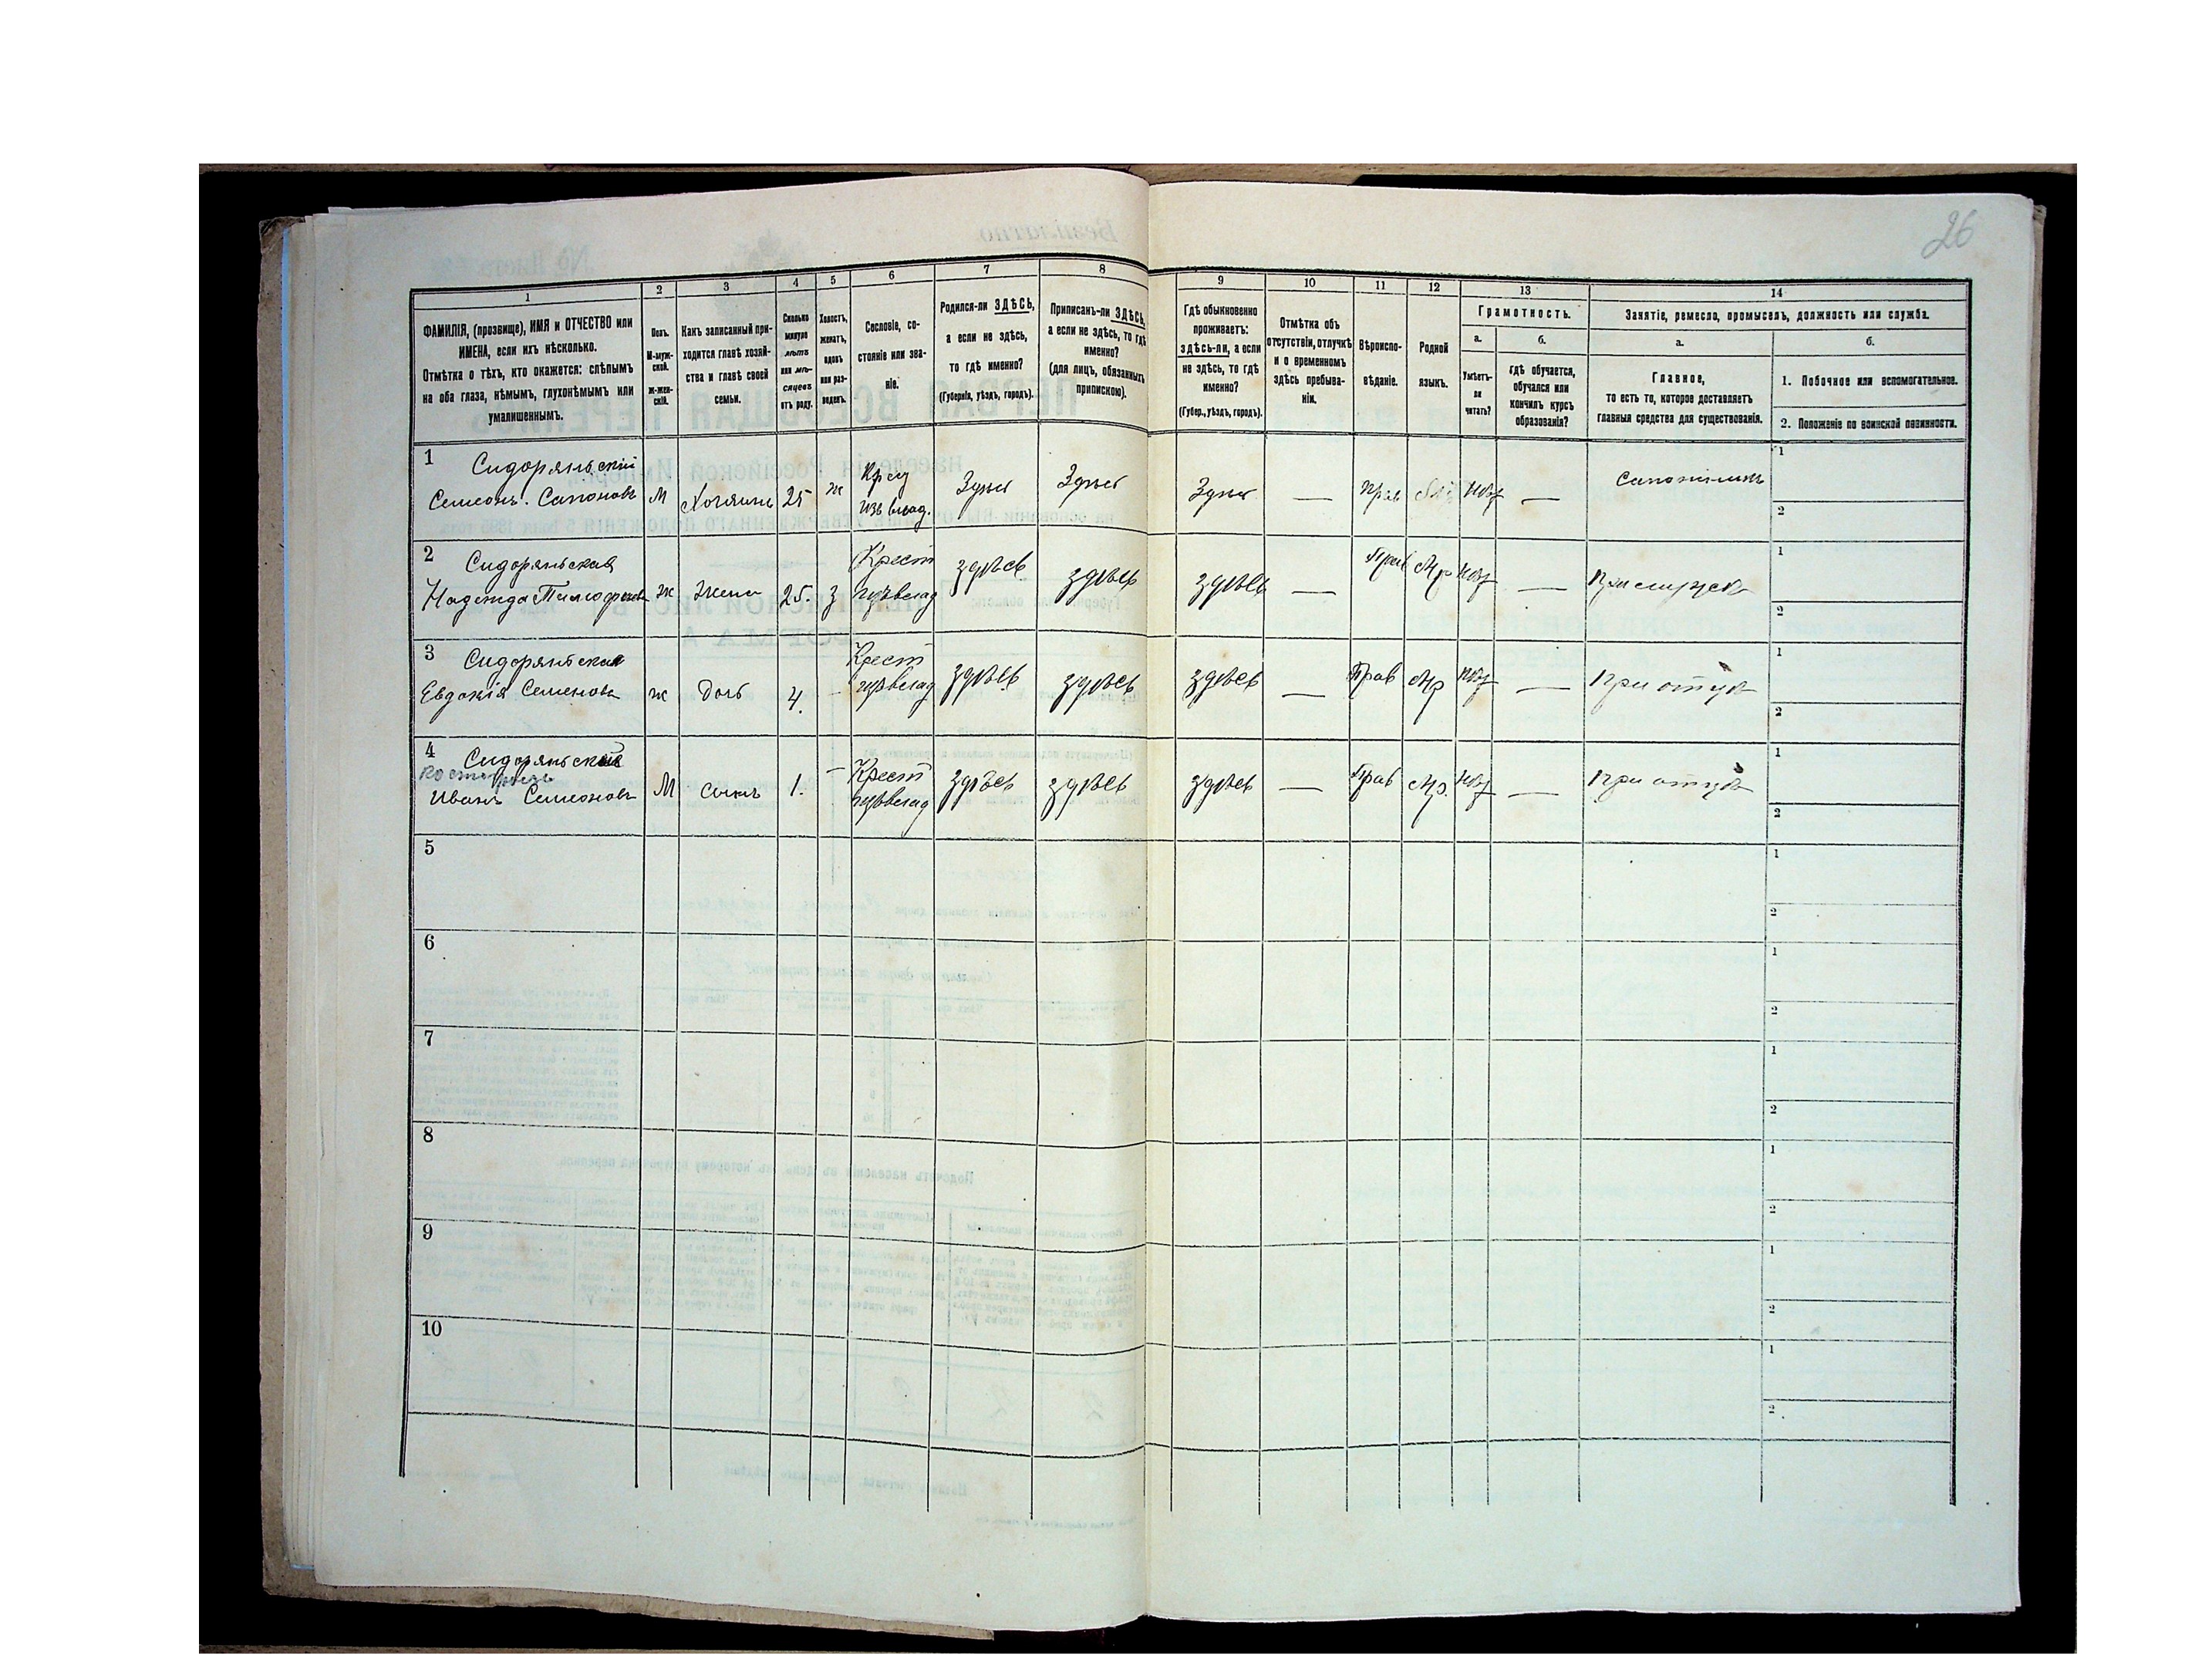 26
1
2
3
4
5
6
7
8
9
10
11
12
13
14
ФАМИЛІЯ, (прозвище), ИМЯ и ОТЧЕСТВО или
ИМЕНА, если ихъ нѣсколько.
Отмѣтка о тѣхъ, кто окажется: слѣпымъ
на оба глаза, нѣмымъ, глухонѣмымъ или
умалишеннымъ.
Полъ.
М-муж-
ской.
ж-жен-
скій.
Какъ записанный при-
ходится главѣ хозяй-
ства и главѣ своей
семьи.
Сколько
минуло
лѣтъ
или мѣ-
сяцевъ
отъ роду.
Холостъ,
женатъ,
вдовъ
или раз-
веденъ.
Сословіе, со-
стояніе или зва-
ніе.
Родился-ли ЗДѢСЬ,
а если не здѣсь,
то гдѣ именно?
(Губернія, уѣздъ, городъ).
Приписанъ-ли ЗДѢСЬ,
а если не здѣсь, то гдѣ
именно?
(для лицъ, обязанныхъ
припискою).
Гдѣ обыкновенно
проживаетъ:
здѣсь-ли, а если
не здѣсь, то гдѣ
именно?
(Губер., уѣздъ, городъ).
Отмѣтка объ
отсутствіи, отлучкѣ
и о временномъ
здѣсь пребыва-
ніи.
Вѣроиспо-
вѣданіе.
Родной
языкъ.
Грамотность.
а.
Умѣетъ-
ли
читать?
б.
гдѣ обучается,
обучался или
кончилъ курсъ
образованія?
Занятіе, ремесло, промыселъ, должность или служба.
а.
Главное,
то есть то, которое доставляетъ
главныя средства для существованія.
б.
1. Побочное или вспомогательное.
2. Положеніе по воинской повинности.
1 Сидоряньскій
Семеонъ Сапоновъ М Хозяинъ 25 ж
Здѣсь Здѣсь Здѣсь — Прав — 
1
2
2 Сидоряньская
Надежда ж Жена 25. З
Крест
здѣсь здѣсь здѣсь — Прав Мр —
1
2
3 Сидоряньская
Евдокія Семенова ж Дочь 4.
Крест
здѣсь здѣсь здѣсь — Прав Мр — При отцѣ
1
2
4 Сидоряньскій
Иванъ Семеоновъ М сынъ 1. —
Крест
здѣсь здѣсь здѣсь — Прав Мр. — При отцѣ
1
2
5
1
2
6
1
2
7
1
2
8
1
2
9
1
2
10
1
2